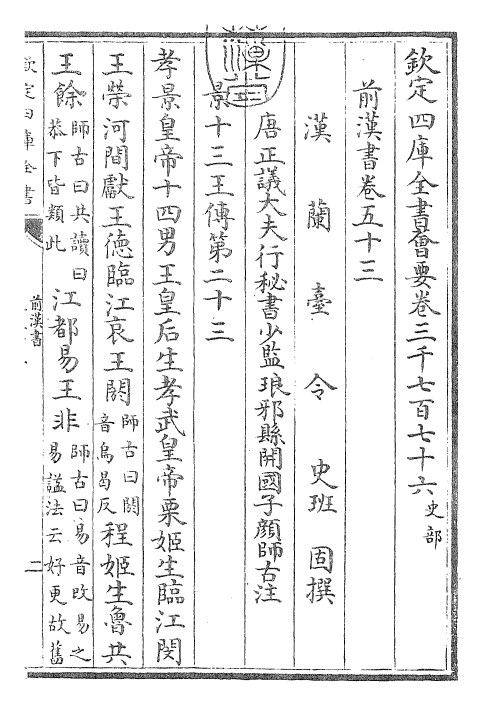 欽定四庫全書會要卷三千七百七十六 史部
前漢書卷五十三
漢 蘭 臺 令 史班 固撰
唐正議大夫行秘書少監琅邪縣開國子顔師古注
景十三王傳第二十三
孝景皇帝十四男王皇后生孝武皇帝栗姬生臨江閔
王榮河間獻王德臨江哀王閼師古曰閼音烏曷反程姬生魯共
王餘師古曰共讀曰恭下皆類此江都易王非師古曰易音改易之易謚法云好更故舊
欽定四庫全書
前漢書
二